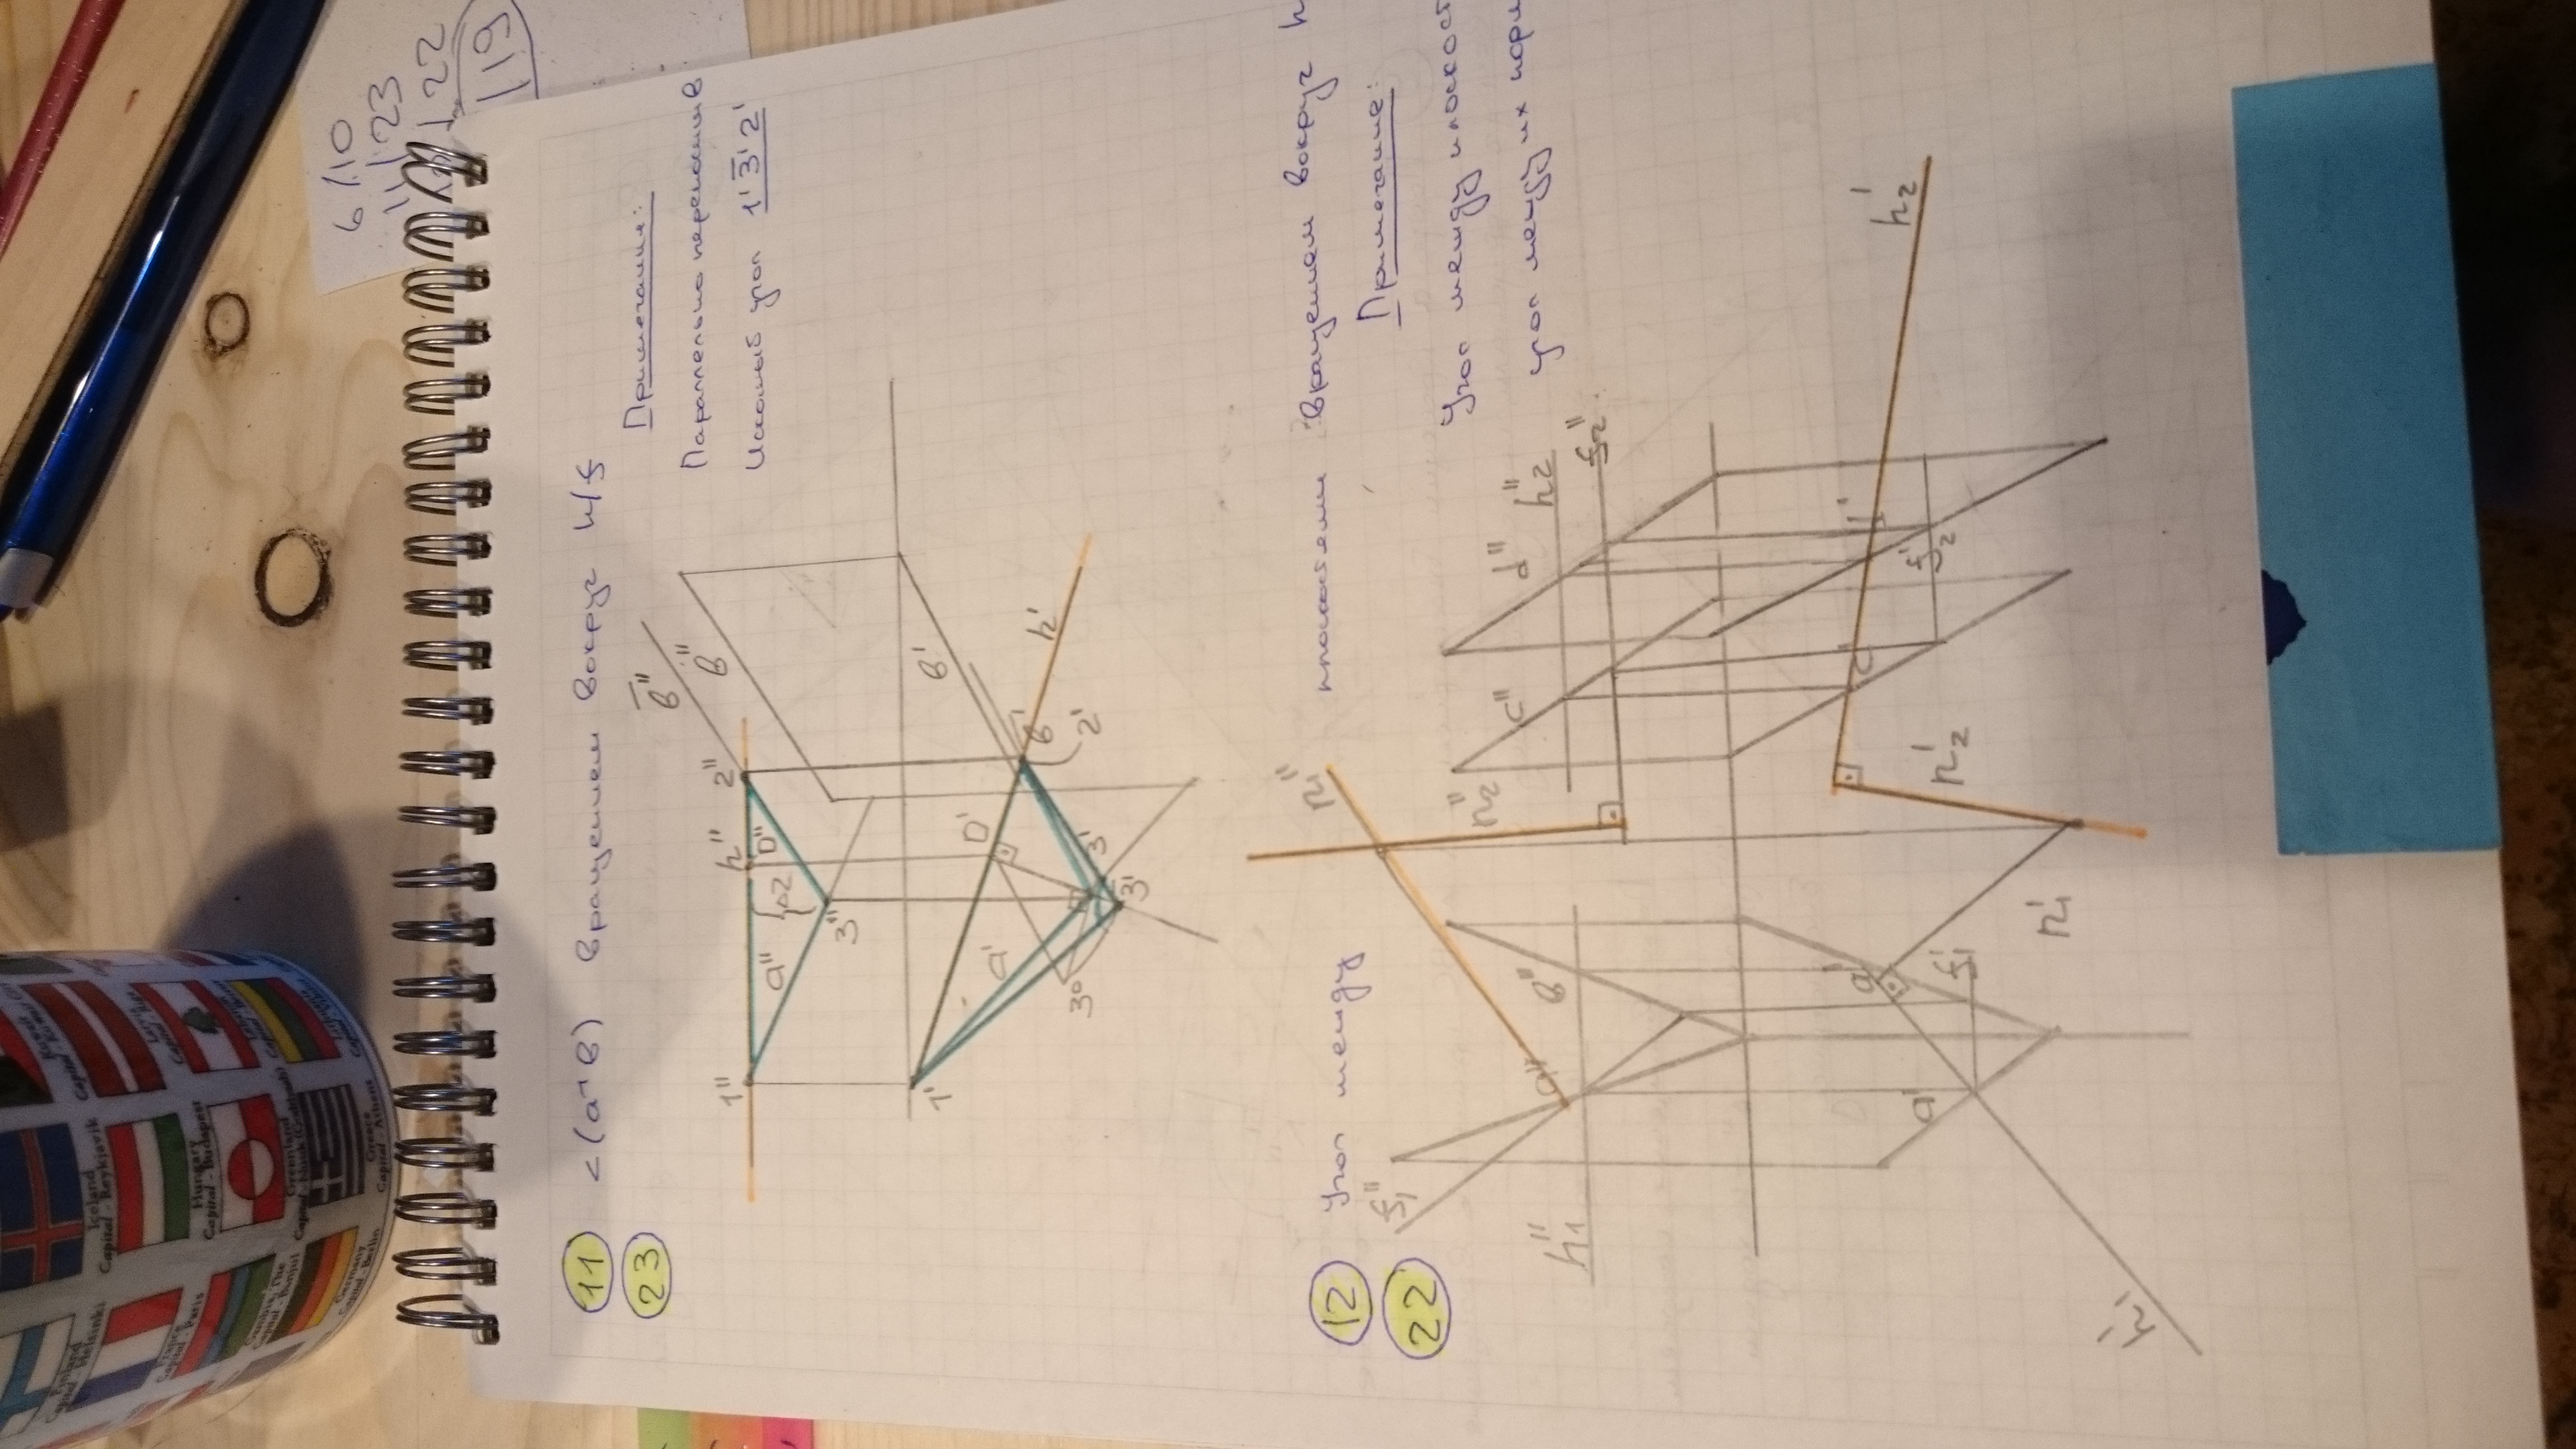 Finland
Capital - Helsinki
Iceland
Capital - Reykjavik
Kuwait
Capital - Kuwait City
France
Capital - Paris
Hungary
Capital - Budapest
Latvia
Capital - Riga
Gambia, The
Capital - Banjul
Greenland
Capital - Nuuk (Godthab)
Lebanon
Capital - Beirut
Germany
Capital - Berlin
Greece
Capital - Athens
Lithuania
Capital - Vilnius
6/10
11/23
22
119
11 <(a^b) вращением вокруг h/f
23
Примечания:
Параллельно переносим b
Искомый угол 1' 3̅' 2'
b̅''
b''
1'' h'' 2''
a'' Δz O''
3''
1'
b'
O'
a'
h'
b̅'
3o 3' 2'
3̅'
12 Угол между плоскостями вращением вокруг h
22
Примечание:
Угол между плоскост
угол между их норм
n1''
f1''
n2'' c'' d'' h2''
h1'' a'' b''
f2''
a' f1'
c' d' h2'
n2' f2'
n1'
h1'